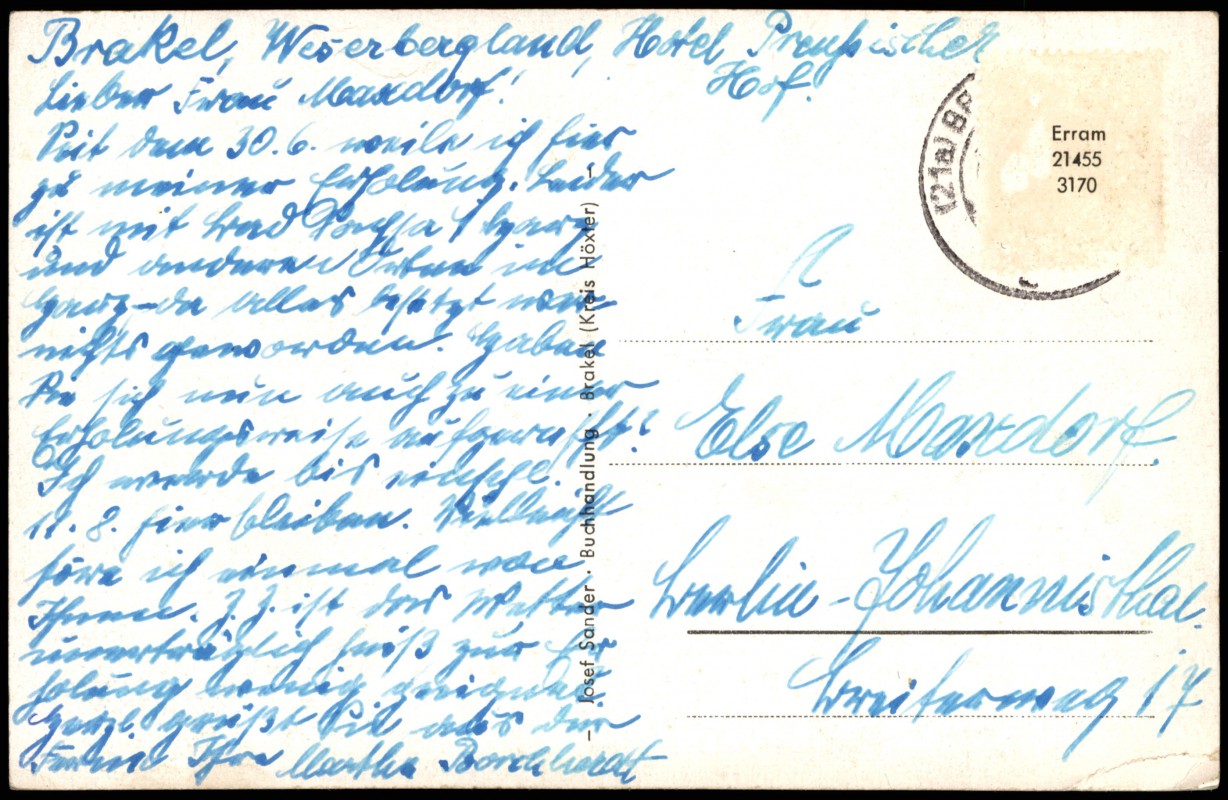 Brakel, Weserbergland, Hotel Preußischer
Hof.
Liebes Frau Maxdorf!
Seit dem 30.6. weile ich hier
zu meiner Erholung. Leider
ist mit Bad Sachsa / Harz
und anderen Orten im
Harz – da alles besetzt war
nichts geworden. Haben
Sie sich nun auch zu einer
Erholungsreise aufgerafft?
Ich werde bis einschl.
11. 8. hier bleiben. Vielleicht
höre ich einmal von
Ihnen. Z. Z. ist das Wetter
unerträglich heiß zur Er
holung wenig geeignet.
Herzl. grüßt Sie aus der
Ferne Ihre Martha Borchhardt
– Josef Sander · Buchhandlung · Brakel (Kreis Höxter) –
(21a) BRA
Erram
21455
3170
Frau
Else Maxdorf.
Berlin-Johannisthal.
Breiterweg 17